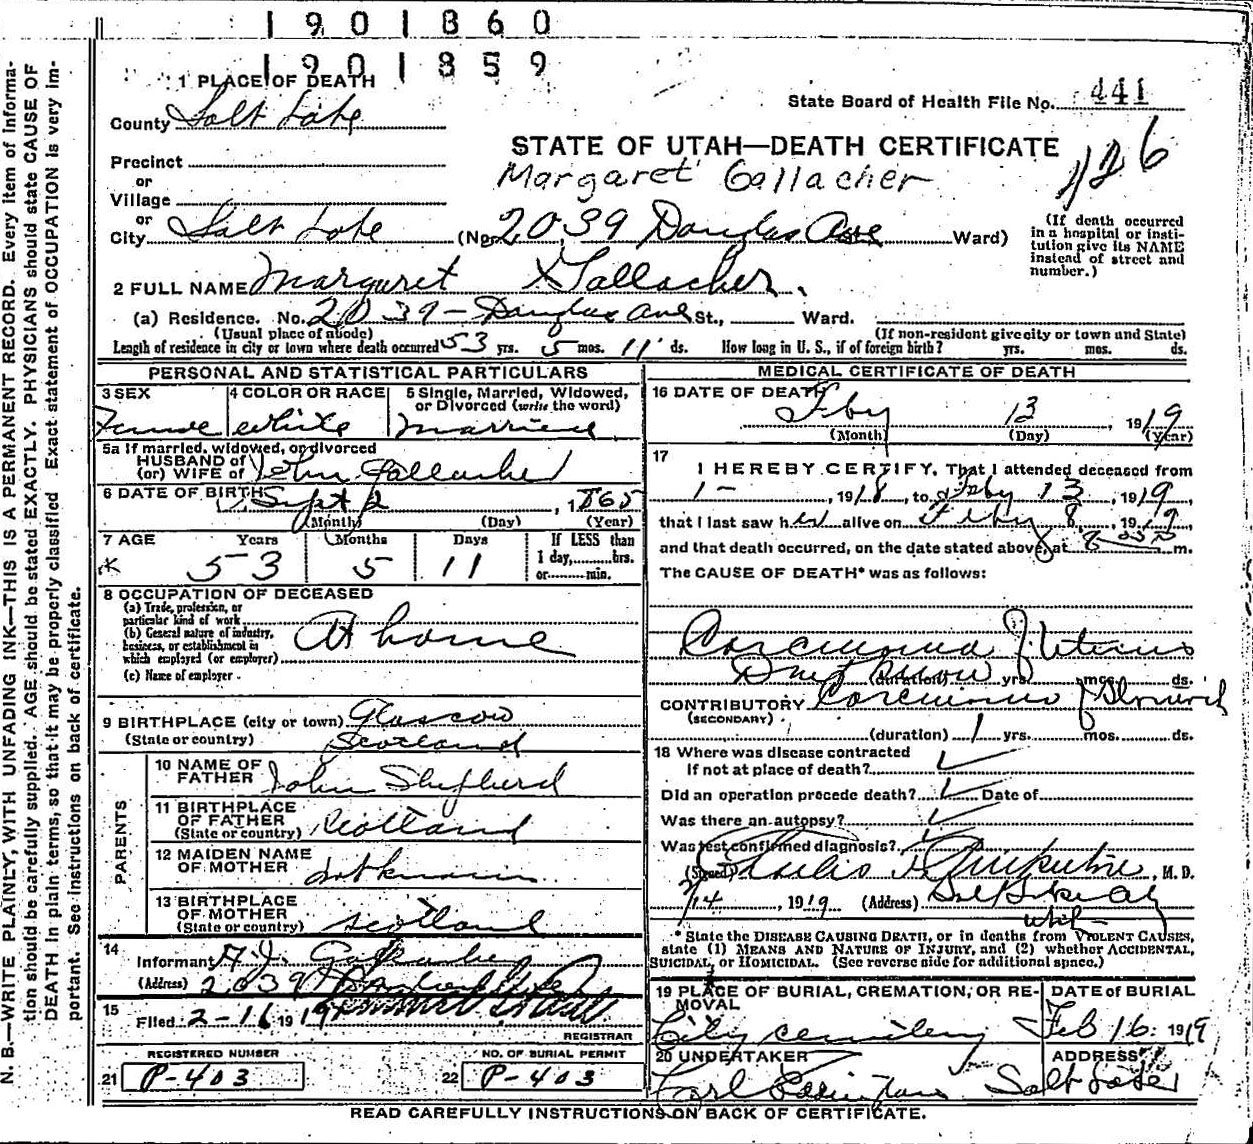 1901860
1901859
1 PLACE OF DEATH
County Salt Lake
State Board of Health File No. 441
STATE OF UTAH—DEATH CERTIFICATE
126
Margaret Gallacher
Precinct
or
Village
or
City Salt Lake (No. 2039 Douglas Ave Ward)
(If death occurred in a hospital or insti-
tution give its NAME
instead of street and
number.)
2 FULL NAME Margaret S Gallacher
(a) Residence. No. 2039 - Douglas Ave St., Ward.
(Usual place of abode) (If non-resident give city or town and State)
Length of residence in city or town where death occurred 53 yrs. 5 mos. 11 ds. How long in U. S., if of foreign birth? yrs. mos. ds.
PERSONAL AND STATISTICAL PARTICULARS
3 SEX 4 COLOR OR RACE 5 Single, Married, Widowed,
or Divorced (write the word)
Female white married
5a If married, widowed, or divorced
HUSBAND of
(or) WIFE of John Gallacher
6 DATE OF BIRTH Sept 2, 1865
(Month) (Day) (Year)
7 AGE Years Months Days If LESS than
1 day, hrs.
or min.
53 5 11
8 OCCUPATION OF DECEASED
(a) Trade, profession, or
particular kind of work
(b) General nature of industry,
business, or establishment in
which employed (or employer)
At home
(c) Name of employer
9 BIRTHPLACE (city or town) Glascow
(State or country) Scotland
PARENTS
10 NAME OF
FATHER John Shepherd
11 BIRTHPLACE
OF FATHER
(State or country) Scotland
12 MAIDEN NAME
OF MOTHER not known
13 BIRTHPLACE
OF MOTHER
(State or country) Scotland
14
Informant
(Address) 2039
15
Filed 2-16 1919
REGISTRAR
REGISTERED NUMBER NO. OF BURIAL PERMIT
21 P-403 22 P-403
MEDICAL CERTIFICATE OF DEATH
16 DATE OF DEATH
Feby 13 1919
(Month) (Day) (Year)
17
I HEREBY CERTIFY, That I attended deceased from
1-, 1918, to Feby 13, 1919,
that I last saw her alive on Feby 8, 1919,
and that death occurred, on the date stated above, at 8 m.
The CAUSE OF DEATH* was as follows:
Carcinoma of Uterus
Dont know (duration) yrs. mos. ds.
CONTRIBUTORY Carcinoma of Stomach
(SECONDARY)
(duration) 1 yrs. mos. ds.
18 Where was disease contracted
if not at place of death?
Did an operation precede death? Date of
Was there an autopsy?
Was test confirmed diagnosis?
(Signed) M. D.
2/14, 1919 (Address) Salt Lake City
Utah
* State the DISEASE CAUSING DEATH, or in deaths from VIOLENT CAUSES,
state (1) MEANS AND NATURE OF INJURY, and (2) whether ACCIDENTAL,
SUICIDAL, or HOMICIDAL. (See reverse side for additional space.)
19 PLACE OF BURIAL, CREMATION, OR RE-
MOVAL DATE of BURIAL
City cemetery Feb 16. 1919
20 UNDERTAKER ADDRESS
Carl Salt Lake
READ CAREFULLY INSTRUCTIONS ON BACK OF CERTIFICATE.
N. B.—WRITE PLAINLY, WITH UNFADING INK—THIS IS A PERMANENT RECORD. Every item of informa-
tion should be carefully supplied. AGE should be stated EXACTLY. PHYSICIANS should state CAUSE OF
DEATH in plain terms, so that it may be properly classified. Exact statement of OCCUPATION is very im-
portant. See instructions on back of certificate.